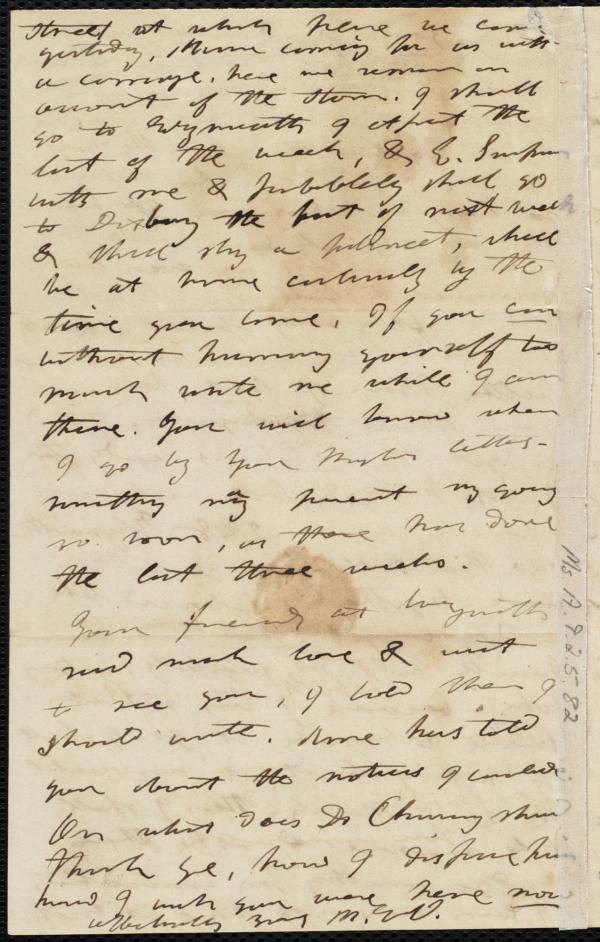 Street at which here we came
yesterday, Anne coming for us with
a carriage. here we remain on
account of the storm. I shall
go to Weymouth I expect the
last of the week, & E.
with me & probablely shall go
to Duxbury the first of next week
& shall stay a, shall
be at home certainly by the
time you come. If you can
without hurrying yourself too
much write me while I am
there. You will know when
I go by your letters -
something may prevent my going
so soon, as there has done
the last three weeks.
Your friends at Weymouth
send much love & want
to see you, I told them I
should write. Anne has told
you about the notices I
On what does Dr Channing
think ye, how I
how I wish you were here now
affectionately yrs M. W. C.
Ms A.9.2.5.82